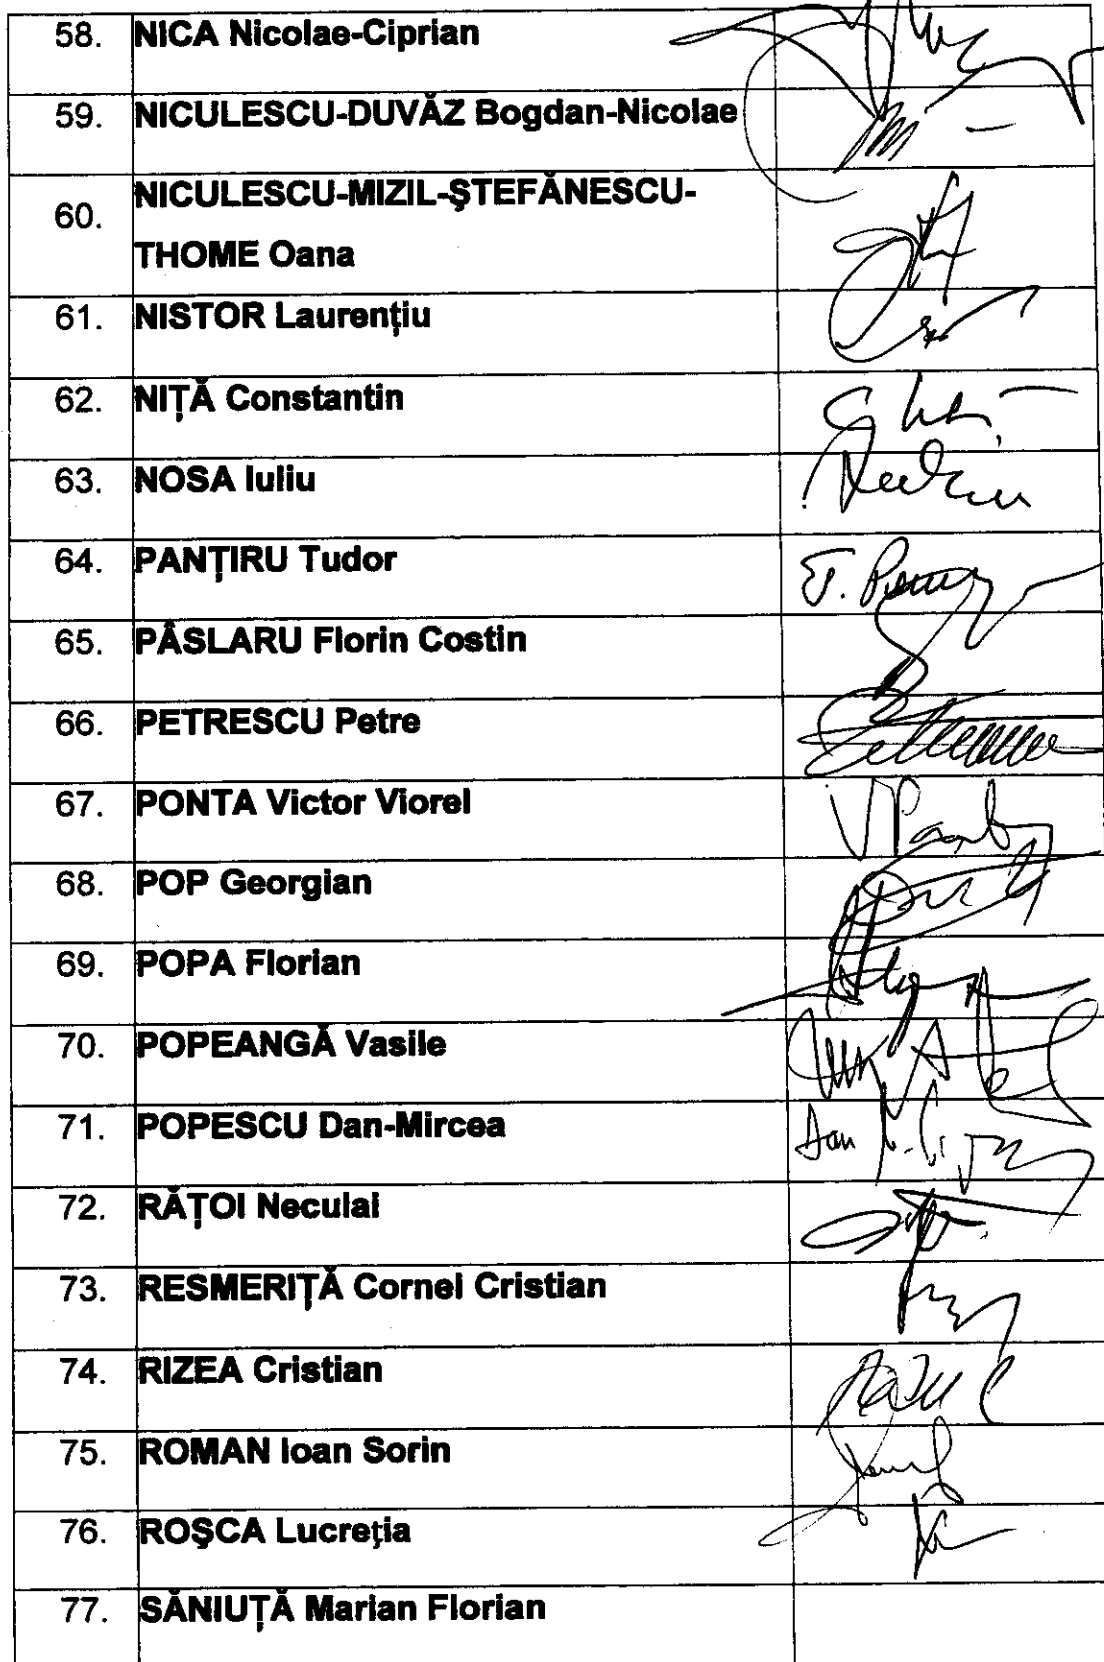 58. NICA Nicolae-Ciprian
59. NICULESCU-DUVĂZ Bogdan-Nicolae
60. NICULESCU-MIZIL-ŞTEFĂNESCU-
THOME Oana
61. NISTOR Laurenţiu
62. NIŢĂ Constantin
63. NOSA Iuliu
64. PANŢIRU Tudor T.
65. PÂSLARU Florin Costin
66. PETRESCU Petre
67. PONTA Victor Viorel VPonta
68. POP Georgian
69. POPA Florian
70. POPEANGĂ Vasile
71. POPESCU Dan-Mircea Dan
72. RĂŢOI Neculai
73. RESMERIŢĂ Cornel Cristian
74. RIZEA Cristian
75. ROMAN Ioan Sorin
76. ROŞCA Lucreţia
77. SĂNIUŢĂ Marian Florian